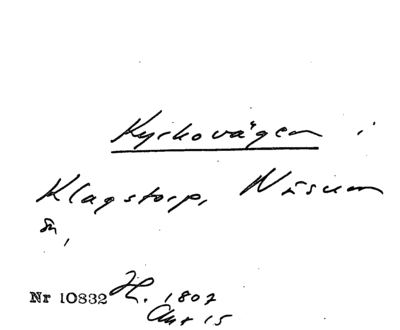 Kyrkovägen i
Klagstorp, Näsum
sn,
Nr 10832 H. 1807
Akt 15